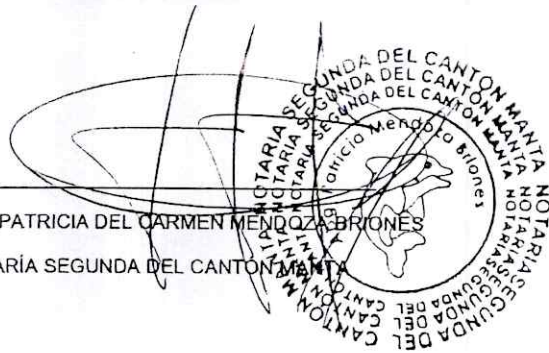 PATRICIA DEL CARMEN MENDOZA BRIONES
ARÍA SEGUNDA DEL CANTON MANTA
NOTARIA SEGUNDA DEL CANTON MANTA
NOTARIA SEGUNDA DEL CANTON MANTA
NOTARIA SEGUNDA DEL CANTON MANTA
Patricia Mendoza Briones